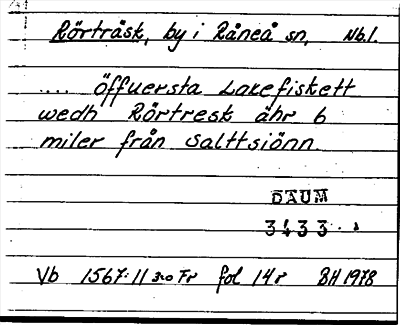 Rörträsk, by i Råneå sn, Nb.l.
.... Öffuersta Lakefiskett
wedh Rörtresk ähr 6
miler från Salttsiönn
DAUM
3433
Vb 1567:11 Fr fol 14r BH 1978